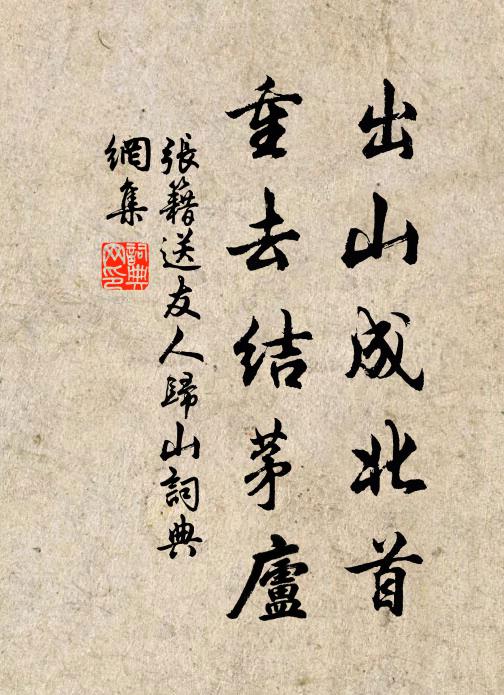 出山成北首
重去结茅廬
張籍送友人歸山詞典
網集
詞典
网印